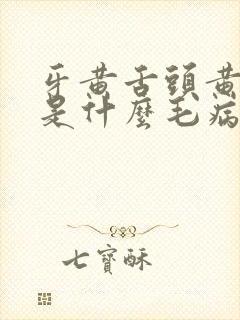 牙黃舌頭黃
是什麼毛病
七寶酥